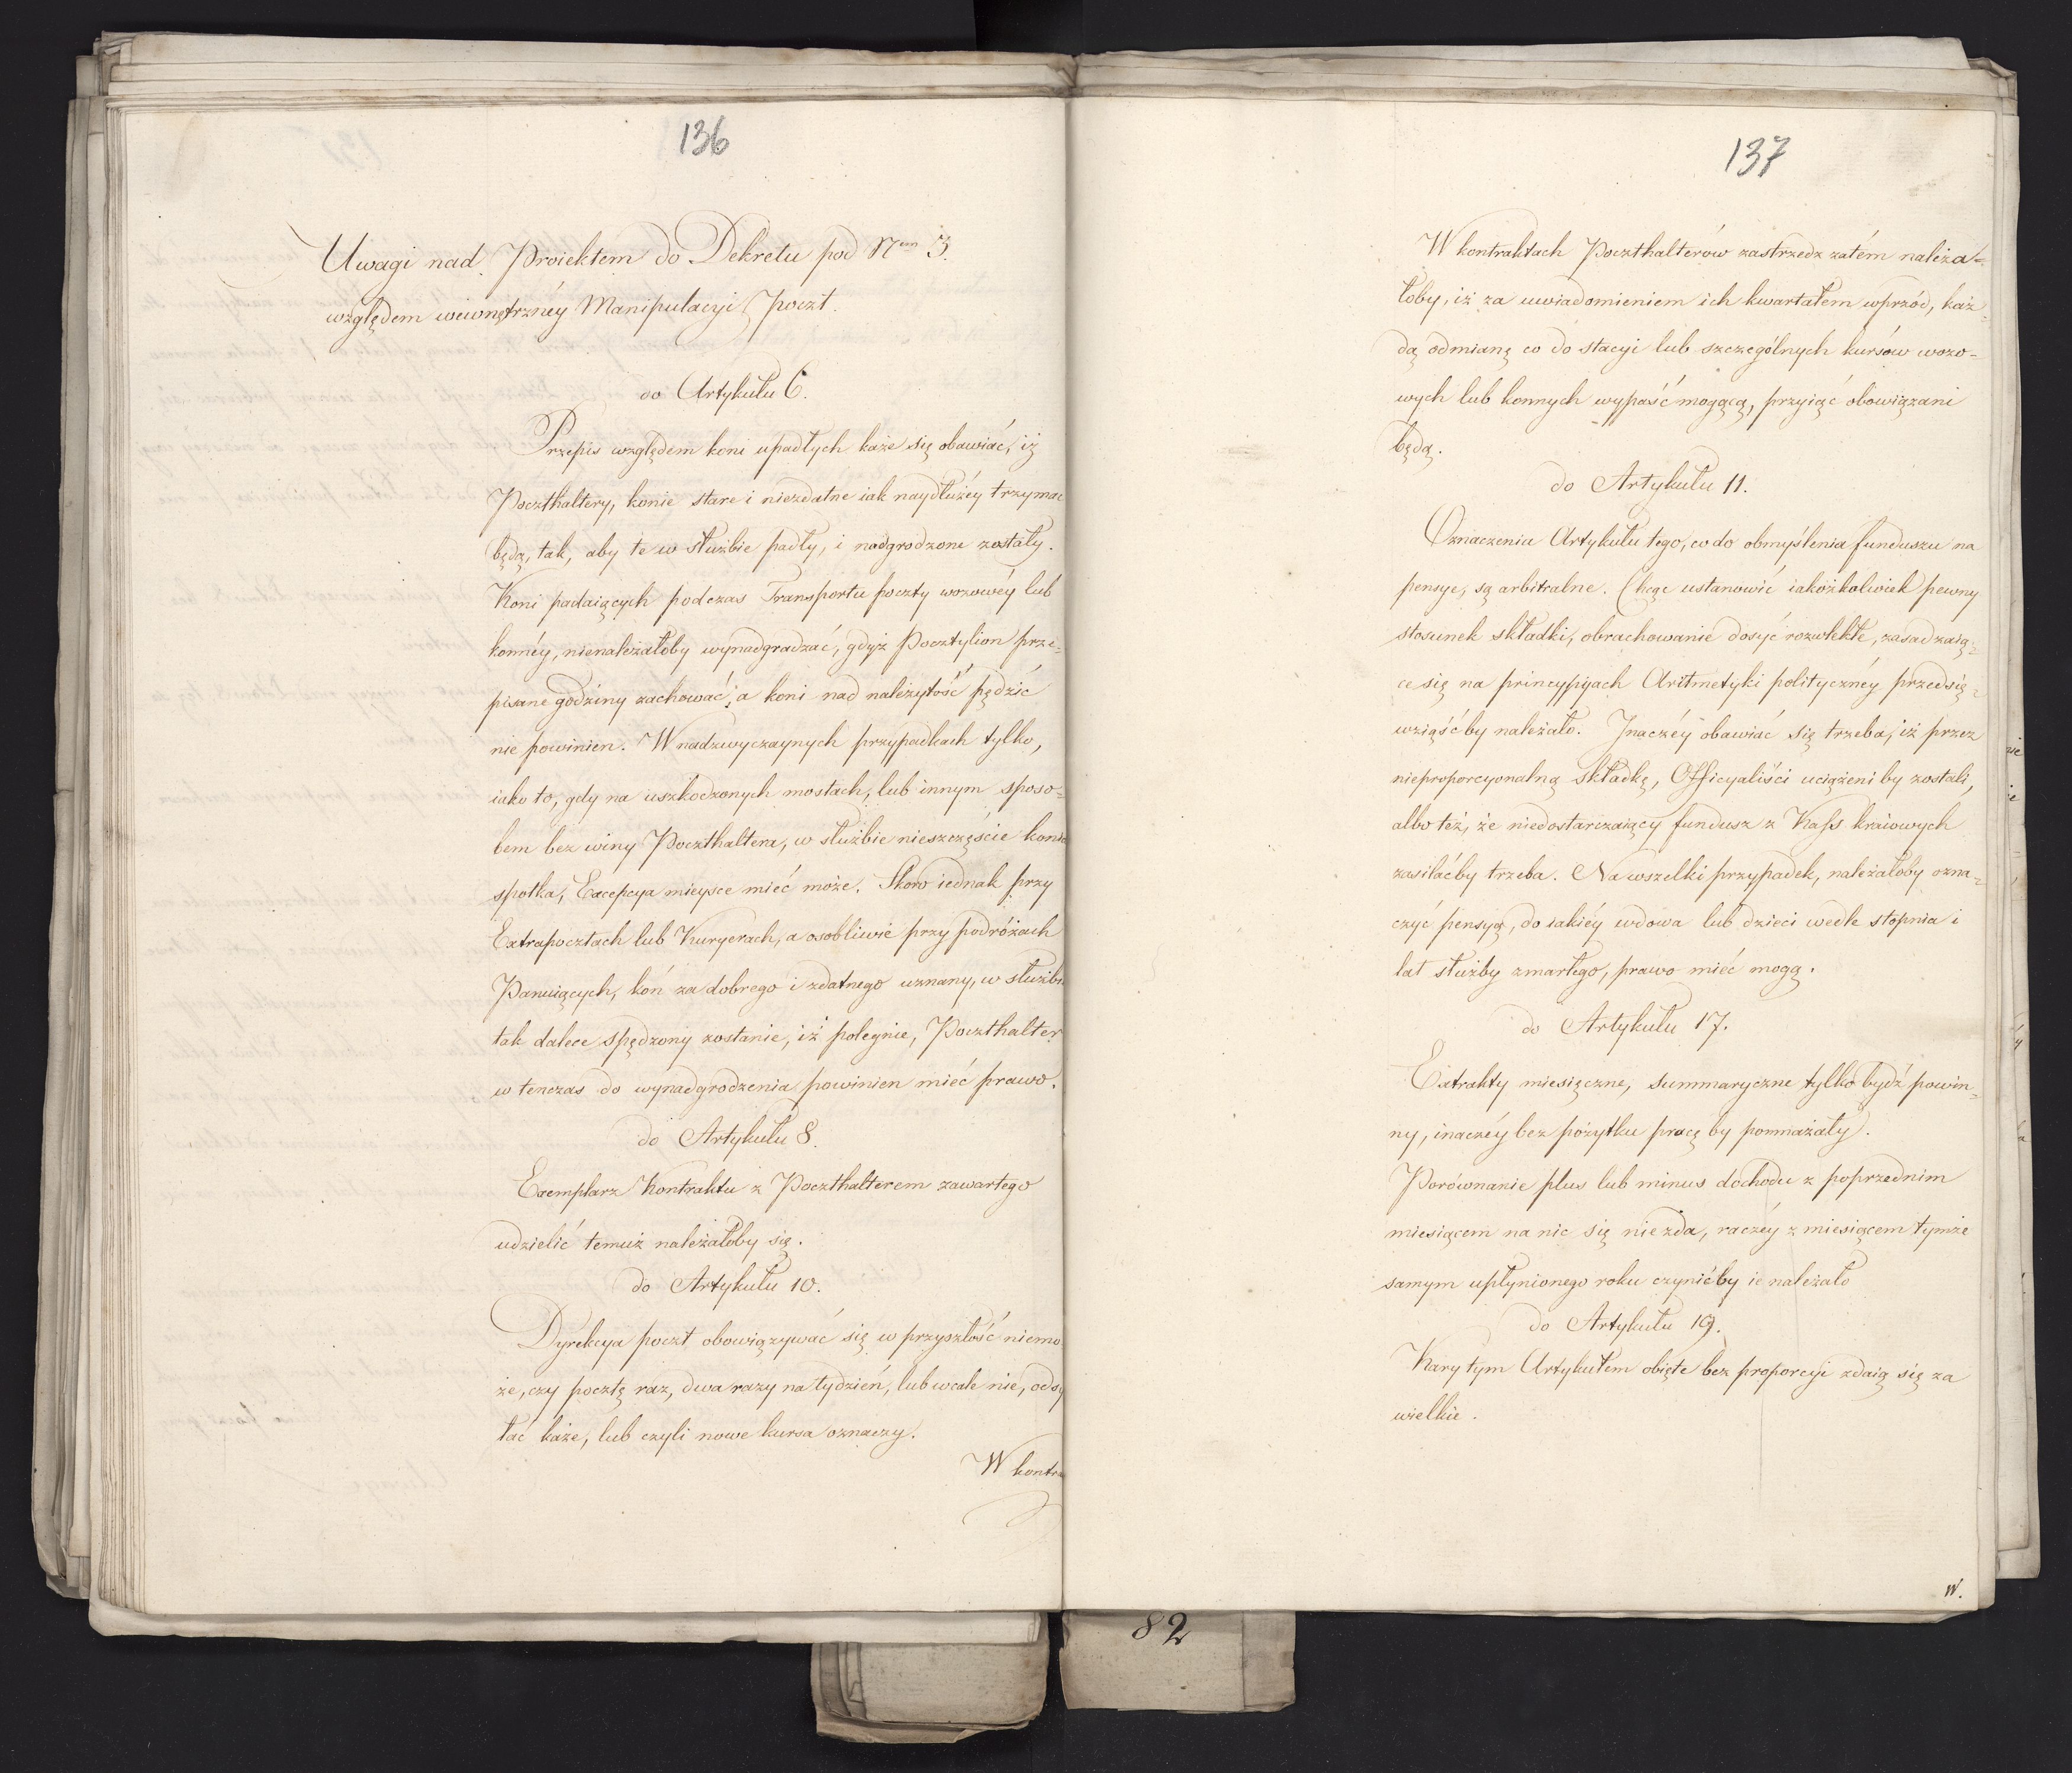 136
Uwagi nad Proiektem do Dekretu pod Nem 3.
względem wewnętrznéy Manipulacyi Poczt.
do Artykułu 6.
Przepis względem koni upadłych każe się obawiać, iż
Poczthaltery, konie stare i niezdatne iak naydłużéy trzymać
będą, tak, aby te w służbie padły, i nadgrodzone zostały.
Koni padaiących podczas Transportu poczty wozowéy lub
konnéy, nienależałoby wynadgradzać, gdyż Pocztylion prze-
pisane godziny zachować, a koni nad należytość pędzić
nie powinien. W nadzwyczaynych przypadkach tylko,
iako to, gdy na uszkodzonych mostach, lub innym sposo-
bem bez winy Poczthaltera, w służbie nieszczęście konia
spotka, Excepcya mieysce mieć może. Skoro iednak przy
Extrapocztach lub Kuryerach, a osobliwie przy podróżach
Panuiących, koń za dobrego i zdatnego uznany, w służbie
tak dalece spędzony zostanie, iż polegnie, Poczthalter
w tenczas do wynadgrodzenia powinien mieć prawo.
do Artykułu 8.
Exemplarz Kontraktu z Poczthalterem zawartego
udzielić temuż należałoby się.
do Artykułu 10.
Dyrekcya poczt obowiązywać się w przyszłość niemo
że, czy pocztę raz, dwa razy na tydzień, lub wcale nie, odsy
łać każe, lub czyli nowe kursa oznaczy.
W kontra
137
W kontraktach Poczthalterów zastrzedz zatém należa-
łoby, iż za uwiadomieniem ich kwartałem wprzód, każ-
dą odmianę co do stacyi lub szczególnych kursów wozo-
wych lub konnych wypaść mogącą, przyiąć obowiązani
będą.
do Artykułu 11.
Oznaczenia Artykułu tego, co do obmyślenia funduszu na
pensye, są arbitralne. Chcąc ustanowić iakożkolwiek pewny
stosunek składki, obrachowanie dosyć rozwlekłe, zasadzaią-
ce się na pryncypijach Aritmetyki polityczney przedsię-
wziąśćby należało. Jnaczéy obawiać się trzeba, iż przez
nieproporcyonalną składkę, Officyaliści uciążeni by zostali,
albo też, że niedostarczaiący fundusz z Kass kraiowych
zasilaćby trzeba. Na wszelki przypadek, należałoby ozna-
czyć pensyą, do iakiéy wdowa lub dzieci wedle stopnia i
lat służby zmarłego, prawo mieć mogą.
do Artykułu 17.
Extrakty miesięczne, summaryczne tylko bydź powin-
ny, inaczéy bez pożytku pracę by pomnażały.
Porównanie plus lub minus dochodu z poprzednim
miesiącem na nic się nie zda, raczéy z miesiącem tymże
samym upłynionego roku czynićby ie należało
do Artykułu 19.
Kary tym Artykułem obięte bez proporcyi zdaią się za
wielkie.
W.
82